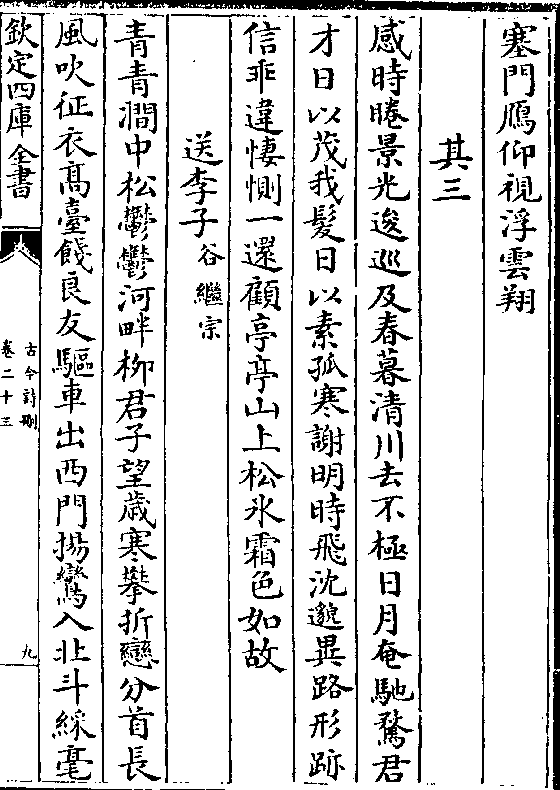 塞門鴈仰視浮雲翔
其三
感時睠景光逡巡及春暮清川去不極日月奄馳騖君
才日以茂我髮日以素孤寒謝明時飛沈邈異路形跡
信乖違悽惻一還顧亭亭山上松氷霜色如故
送李子 谷繼宗
青青澗中松鬱鬱河畔柳君子望歲寒攀折戀分首長
風吹征衣高臺餞良友驅車出西門揚鸞入北斗綵毫
欽定四庫全書
古今詩刪
卷二十三
九